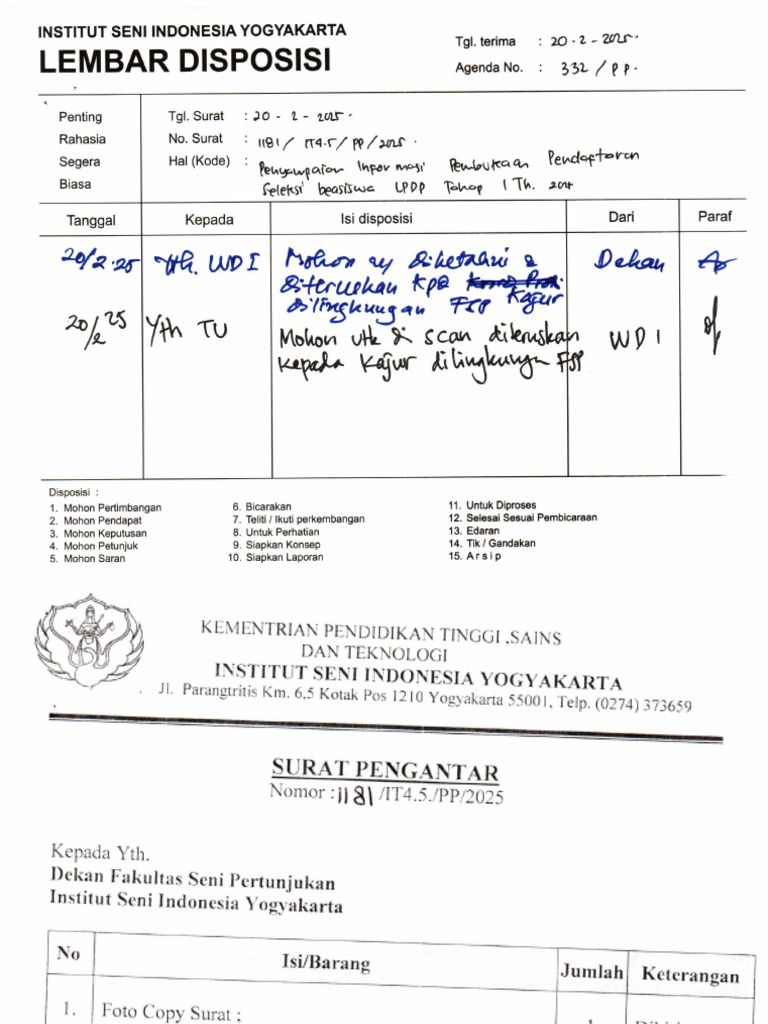 INSTITUT SENI INDONESIA YOGYAKARTA
LEMBAR DISPOSISI
Tgl. terima : 20-2-2025
Agenda No. : 332/PP.
Penting
Rahasia
Segera
Biasa
Tgl. Surat : 20 - 2 - 2025
No. Surat : 1181/ IT4.5/PP/2025.
Hal (Kode) : Penyampaian Informasi Pembukaan Pendaftaran
Seleksi beasiswa LPDP Tahap 1 Th.
Tanggal Kepada Isi disposisi Dari Paraf
20/2.25 Yth. WDI Mohon diketahui & Dekan
diteruskan kpd Kajur
dilingkungan FSP
20/2 25 Yth TU Mohon utk di scan diteruskan WD1
kepada Kajur dilingkungan FSP
Disposisi :
1. Mohon Pertimbangan
2. Mohon Pendapat
3. Mohon Keputusan
4. Mohon Petunjuk
5. Mohon Saran
6. Bicarakan
7. Teliti / Ikuti perkembangan
8. Untuk Perhatian
9. Siapkan Konsep
10. Siapkan Laporan
11. Untuk Diproses
12. Selesai Sesuai Pembicaraan
13. Edaran
14. Tik / Gandakan
15. A r s i p
KEMENTRIAN PENDIDIKAN TINGGI ,SAINS
DAN TEKNOLOGI
INSTITUT SENI INDONESIA YOGYAKARTA
Jl. Parangtritis Km. 6,5 Kotak Pos 1210 Yogyakarta 55001, Telp. (0274) 373659
SURAT PENGANTAR
Nomor : 1181 /IT4.5./PP/2025
Kepada Yth.
Dekan Fakultas Seni Pertunjukan
Institut Seni Indonesia Yogyakarta
No Isi/Barang Jumlah Keterangan
1. Foto Copy Surat ;